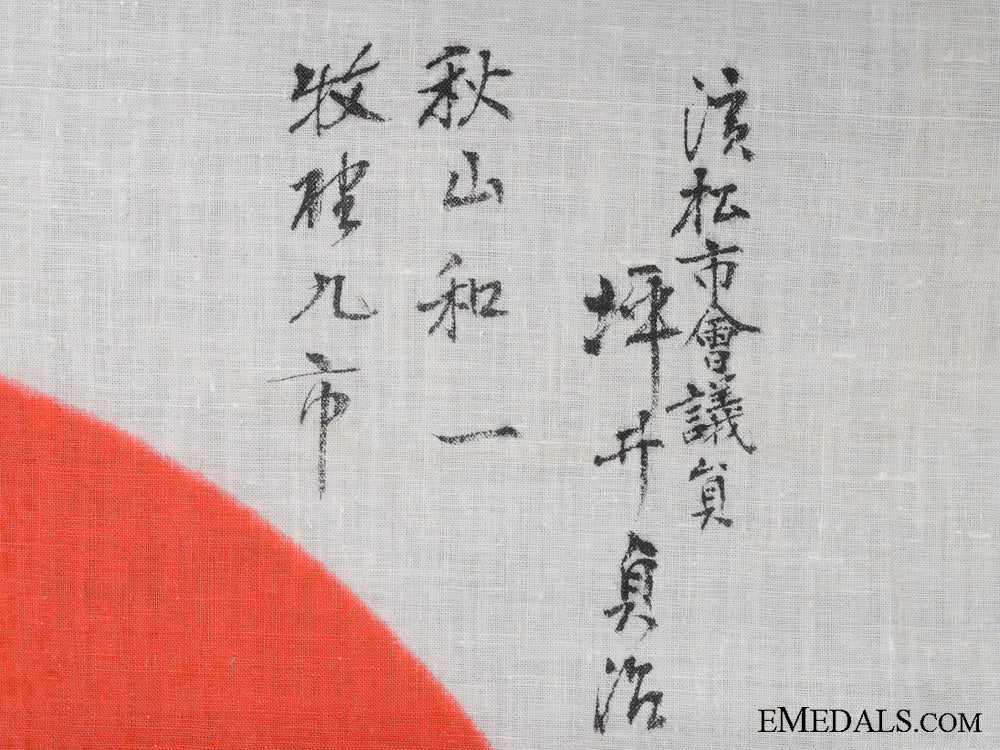 濱松市會議員
坪井貞治
秋山和一
牧野九市
EMEDALS.COM